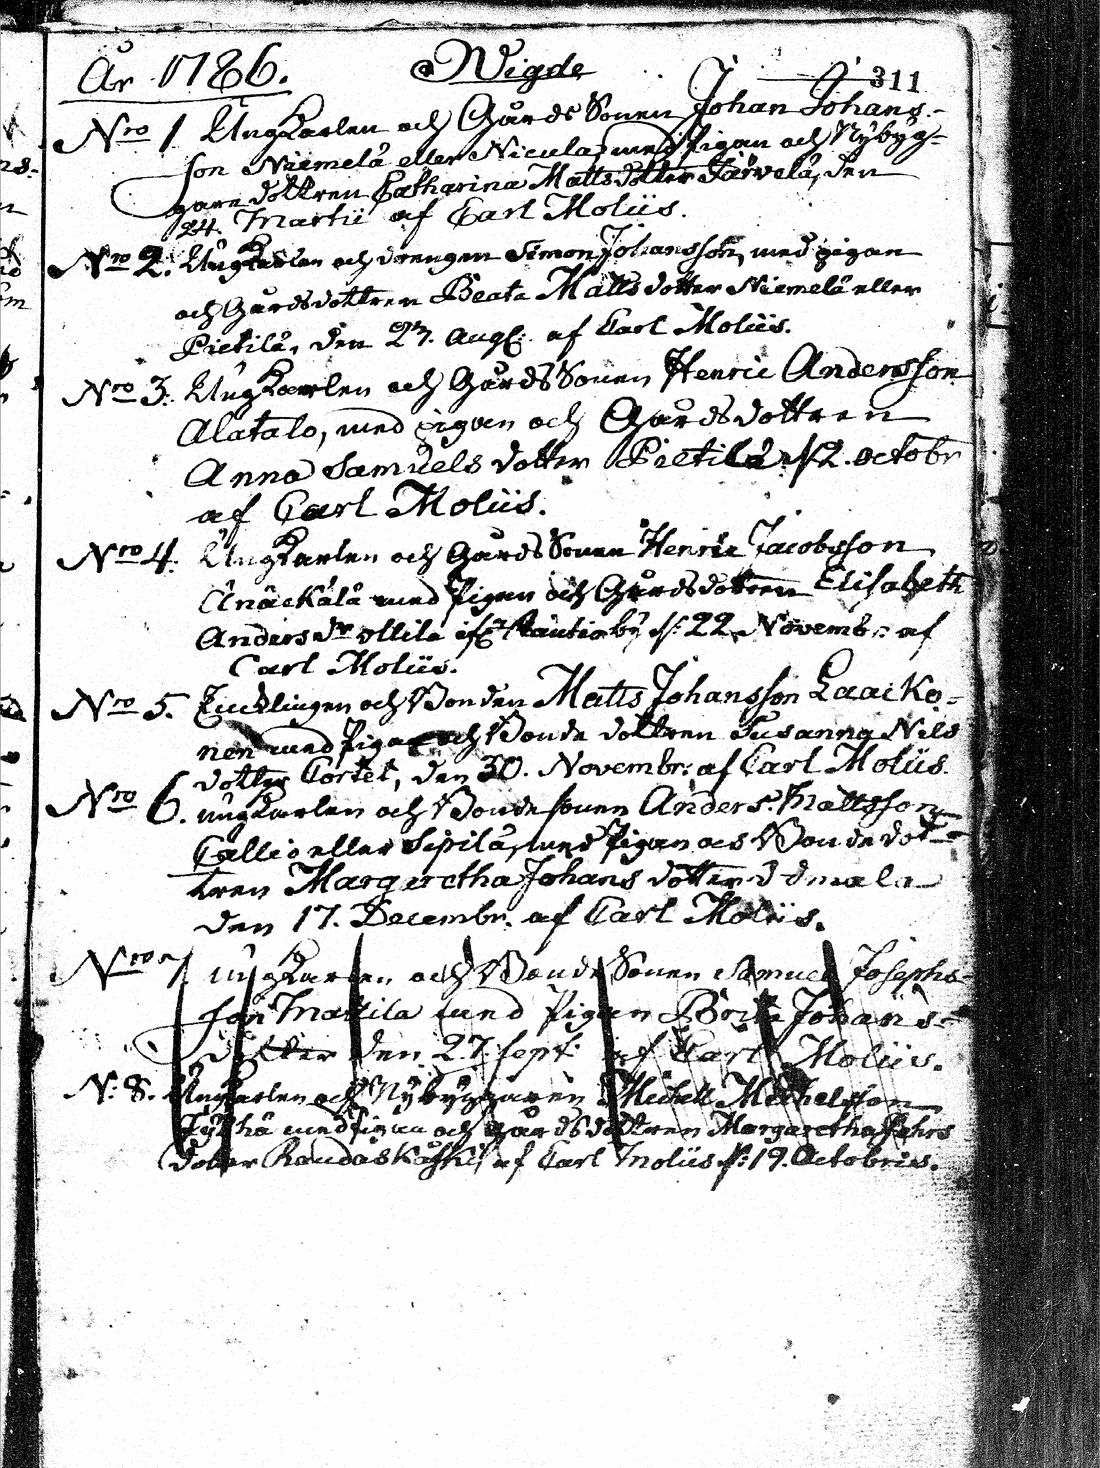 År 1786. Wigde 311
Nro 1 Ungkarlen och Gårds Sonen Johan Johans-
son Niemelä eller Nicula, med Pigan och Nybyg-
gare dottren Catharina Matts dotter Järvelä, den
24. Martii af Carl Moliis.
Nro 2. Ungkarlen och drengen Simon Johansson, med pigan
och Gårds dottren Beata Matts dotter Niemelä eller
Pietilä, den 27. Aug. af Carl Moliis.
Nro 3. Ungkarlen och Gårds Sonen Henric Andersson
Alatalo, med pigan och Gårds dottren
Anna Samuels dotter Pietilä d. 12. octobr
af Carl Moliis.
Nro 4. Ungkarlen och Gårds Sonen Henric Jacobsson
Änäckälä med Pigan och Gårds dottren Elisabeth
Anders dr Ollila ifr. Rautio by d. 22. Novembr. af
Carl Moliis.
Nro 5. Enklingen och Bonden Matts Johansson Laacko-
nen med Pigan och Bonde dottren Susanna Nils
dotter Cortet, den 30. Novembr. af Carl Moliis.
Nro 6. ungkarlen och Bonde sonen Anders Mattsson
Callio eller Sipilä, med Pigan och Bonde dot-
tren Margaretha Johans dotter
den 17. Decembr. af Carl Moliis.
Nro 7. ungkarlen och Bonde Sonen Samuel Josephs-
son Mattila med Pigan Brita Johans-
dotter den 27. Sept. af Carl Moliis.
N: 8. Ungkarlen och Nybyggaren Michell Michelsson
med Pigan och Gårds dottren Margaretha Johans
dotter Raudaskåski, af Carl Moliis d: 19. Octobris.